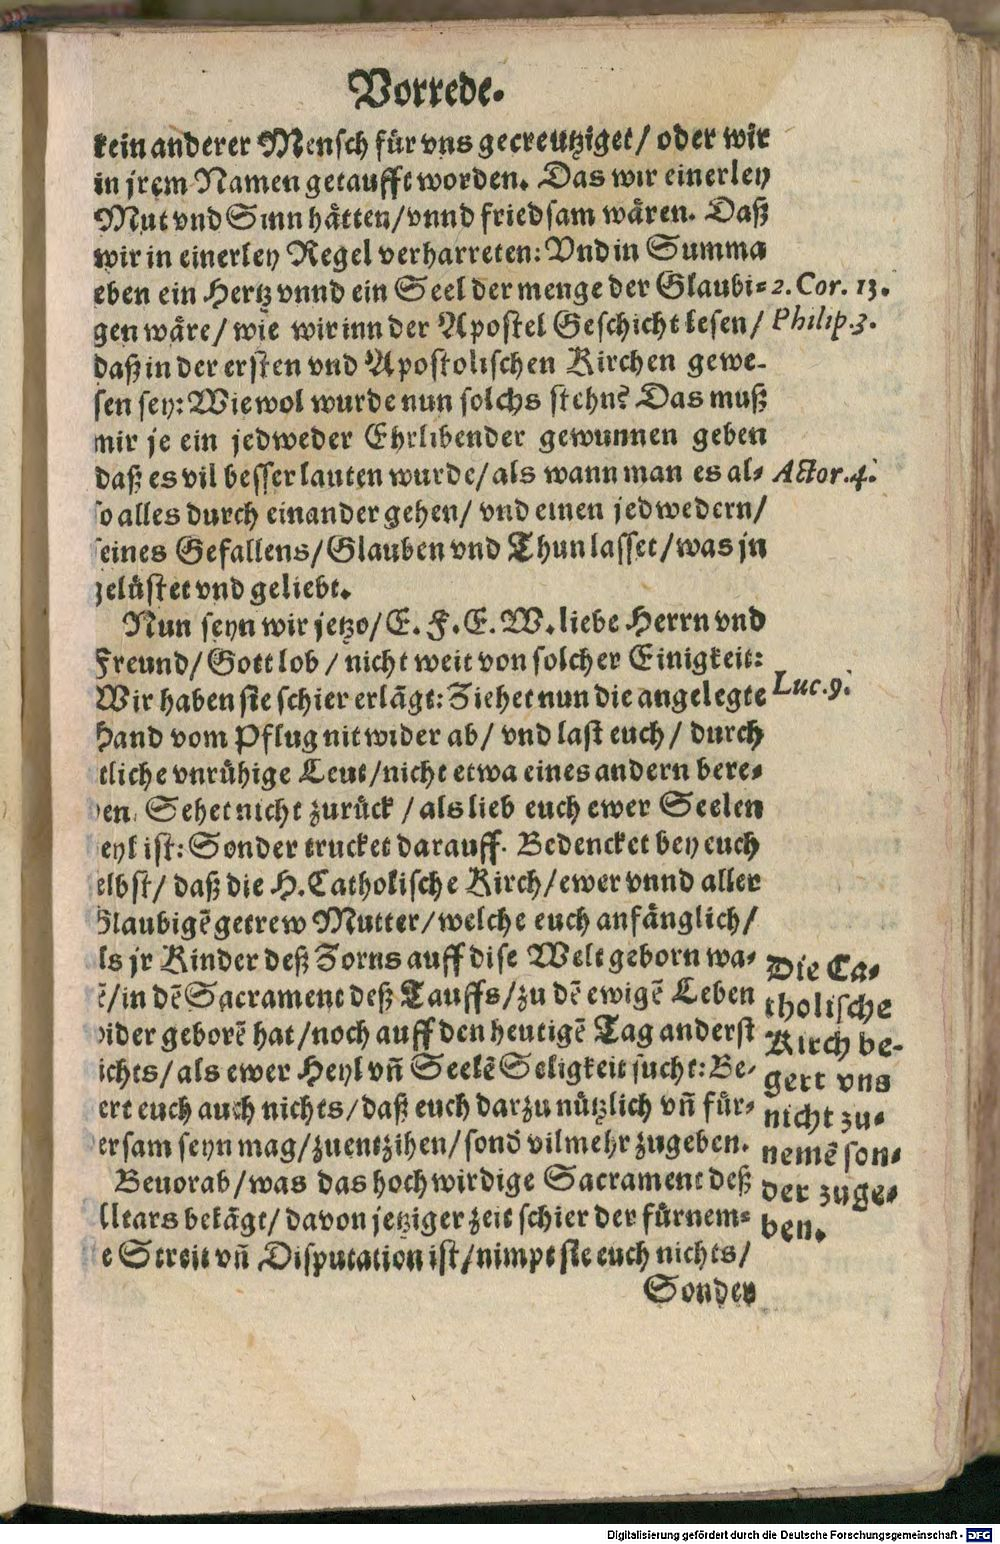 Vorrede.
kein anderer Mensch für vns gecreutziget/ oder wir
in jrem Namen getaufft worden. Das wir einerley
Mut vnd Sinn hätten/vnnd friedsam wären. Daß
wir in einerley Regel verharreten: Vnd in Summa
eben ein Hertz vnnd ein Seel der menge der Glaubi-
2. Cor. 13.
gen wäre/ wie wir inn der Apostel Geschicht lesen/
Philip. 3.
daß in der ersten vnd Apostolischen Kirchen gewe-
sen sey: Wie wol wurde nun solchs stehn? Das muß
mir je ein jedweder Ehrlibender gewunnen geben
daß es vil besser lauten wurde/als wann man es al-
Actor. 4.
so alles durch einander gehen/ vnd einen jedwedern/
seines Gefallens/Glauben vnd Thun lasset/was jn
gelüstet vnd geliebt.
Nun seyn wir jetzo/E. F. E. W. liebe Herrn vnd
Freund/Gott lob/nicht weit von solcher Einigkeit:
Wir haben sie schier erlägt: Ziehet nun die angelegte
Luc. 9.
Hand vom Pflug nit wider ab/ vnd last euch/ durch
tliche vnrühige Leut/nicht etwa eines andern bere-
en. Sehet nicht zurück/als lieb euch ewer Seelen
eyl ist: Sonder trucket darauff. Bedencket bey euch
elbst/ daß die H. Catholische Kirch/ewer vnnd aller
Glaubigẽ getrew Mutter/welche euch anfänglich/
ls jr Kinder deß Zorns auff dise Welt geborn wa-
ẽ/in dẽ Sacrament deß Tauffs/zu dẽ ewigẽ Leben
wider geborẽ hat/noch auff den heutigẽ Tag anderst
ichts/als ewer Heyl vñ Seelẽ Seligkeit sucht: Be-
ert euch auch nichts/daß euch darzu nützlich vñ für-
ersam seyn mag/zuentzihen/sond̃ vilmehr zugeben.
Die Ca-
tholische
Kirch be-
gert vns
nicht zu-
nemẽ son-
der zuge-
ben.
Beuorab/was das hochwirdige Sacrament deß
Altars bekãgt/davon jetziger zeit schier der fürnem-
e Streit vñ Disputation ist/nimpt sie euch nichts/
Sonder
Digitalisierung gefördert durch die Deutsche Forschungsgemeinschaft - DFG